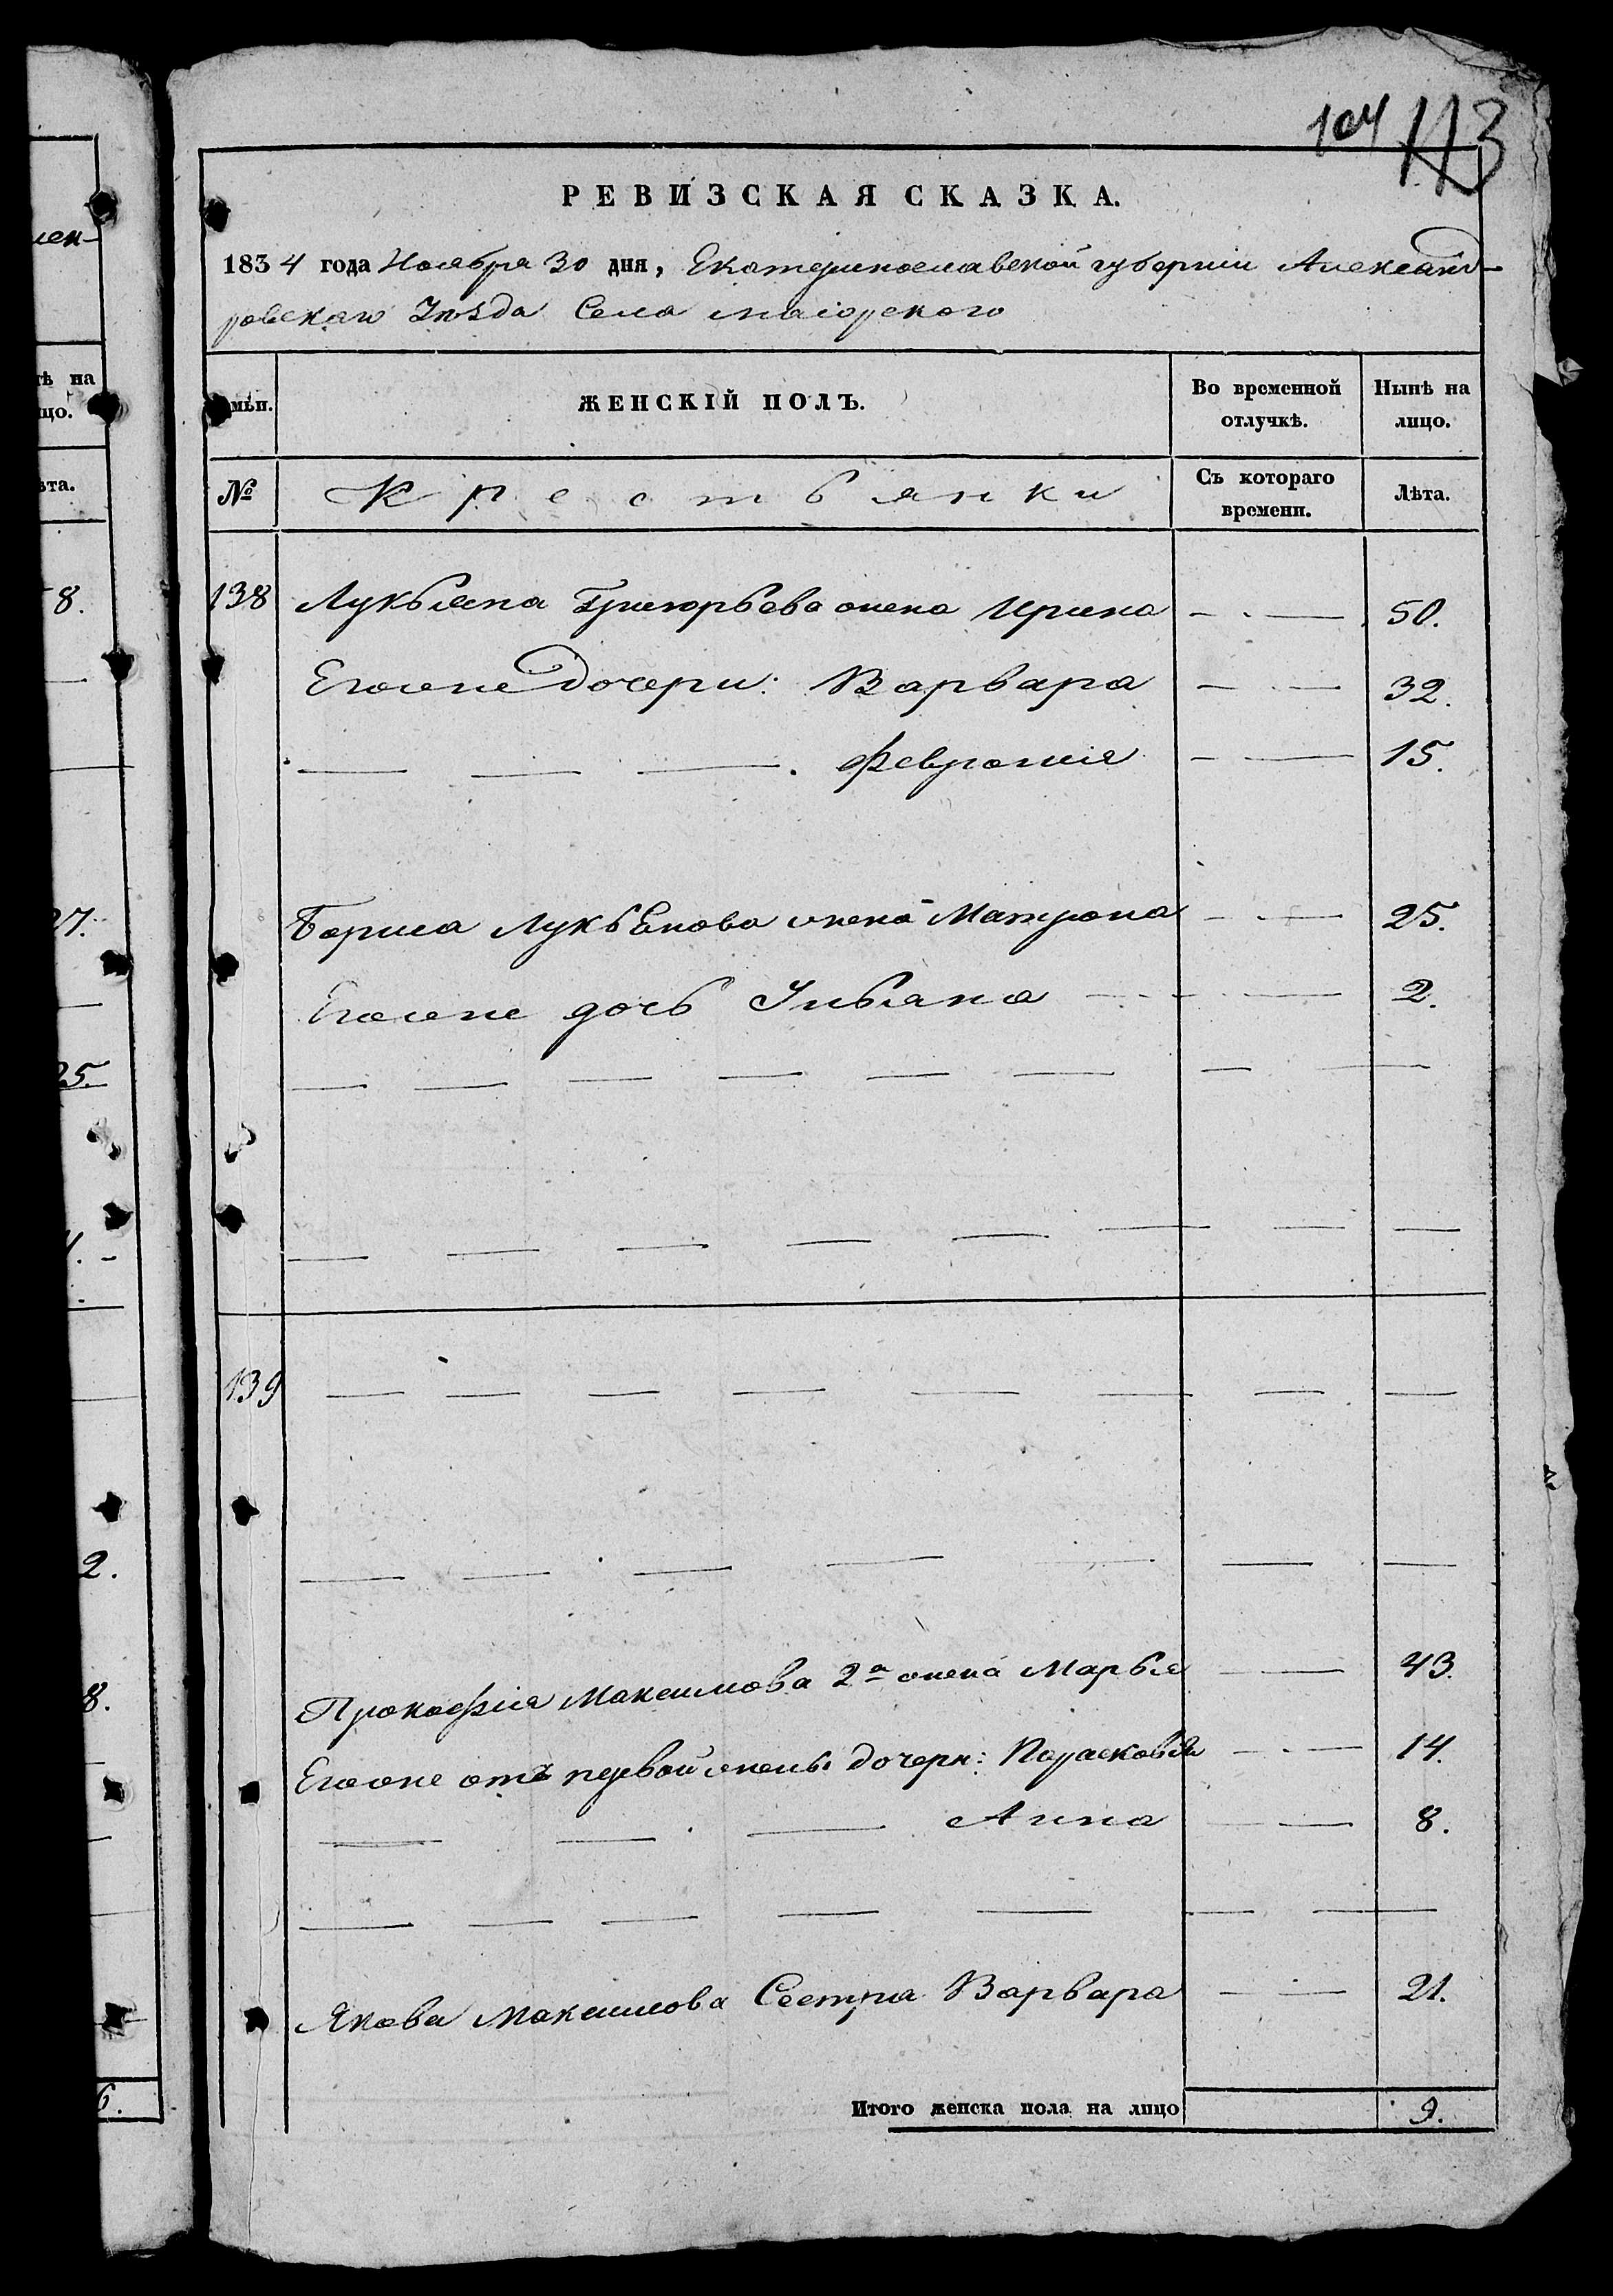 104 113
РЕВИЗСКАЯ СКАЗКА.
1834 года Ноября 30 дня, Екатеринославской губернии Александ-
ровскаго Уѣзда Села Маіорского
мьи. ЖЕНСКІЙ ПОЛЪ. Во временной отлучкѣ. Нынѣ на лицо.
№ Крестьянки Съ котораго времени. Лѣта.
138 Лукьяна Григорьева жена Ирина — · — 50.
Егоже дочери: Варвара — · — 32.
— — — . Феврония — — 15.
Бориса Лукьянова жена Матрона — · — 25.
Егоже дочь Ульяна — · — 2.
— — — — — — — —
— — — — — — — —
139 — — — — — — — —
— — — — — — —
Прокофія Максимова 2я жена Марья — — 43.
Егоже отъ первой жены дочери: Парасковья — · — 14.
— — . — Анна — — 8.
— — — — — — —
Якова Максимова Сестра Варвара — — 21.
Итого женска пола на лицо 9.
лен-
тѣ на
цо.
ѣта.
8.
27.
25.
2.
8.
6.